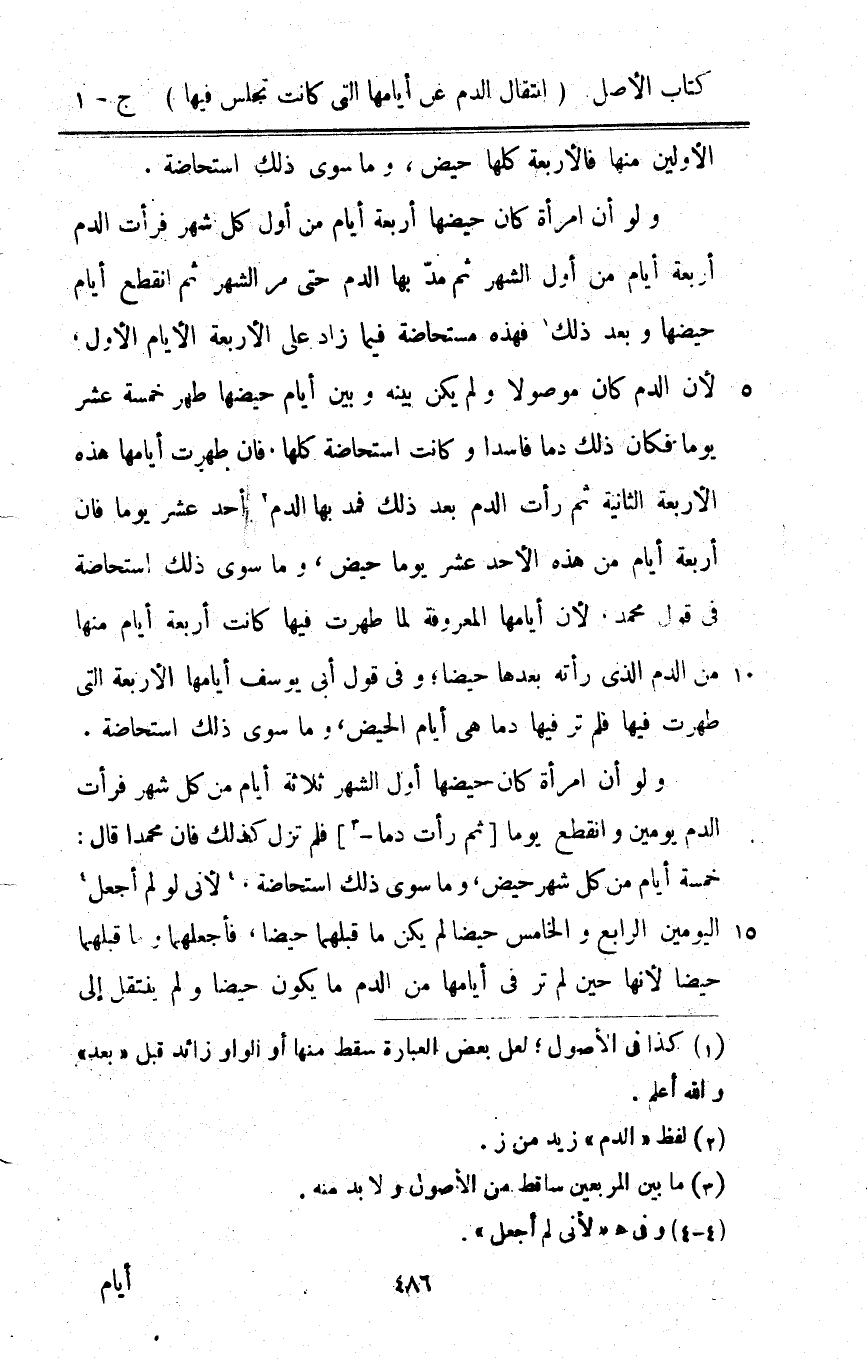 كتاب الأصل ( انتقال الدم عن أيامها التى كانت تجلس فيها ) ج - ١
الأولين منها فالأربعة كلها حيض ، و ما سوى ذلك استحاضة .
و لو أن امرأة كان حيضها أربعة أيام من أول كل شهر فرأت الدم
أربعة أيام من أول الشهر ثم مدّ بها الدم حتى مر الشهر ثم انقطع أيام
حيضها و بعد ذلك ١ فهذه مستحاضة فيما زاد على الأربعة الأيام الأول ،
٥ لأن الدم كان موصولا و لم يكن بينه و بين أيام حيضها طهر خمسة عشر
يوما فكان ذلك دما فاسدا و كانت استحاضة كلها . فان طهرت أيامها هذه
الأربعة الثانية ثم رأت الدم بعد ذلك فمد بها الدم ٢ أحد عشر يوما فان
أربعة أيام من هذه الأحد عشر يوما حيض ، و ما سوى ذلك استحاضة
فى قول محمد . لأن أيامها المعروفة لما طهرت فيها كانت أربعة أيام منها
١٠ من الدم الذى رأته بعدها حيضا ؛ و فى قول أبى يوسف أيامها الأربعة التى
طهرت فيها فلم تر فيها دما هى أيام الحيض ، و ما سوى ذلك استحاضة .
و لو أن امرأة كان حيضها أول الشهر ثلاثة أيام من كل شهر فرأت
الدم يومين و انقطع يوما [ ثم رأت دما - ٣ ] فلم تزل كذلك فان محمدا قال :
خمسة أيام من كل شهر حيض ، و ما سوى ذلك استحاضة . ٤ لأنى لو لم أجعل ٤
١٥ اليومين الرابع و الخامس حيضا لم يكن ما قبلهما حيضا ، فأجعلهما و ما قبلهما
حيضا لأنها حين لم تر فى أيامها من الدم ما يكون حيضا و لم ينتقل إلى
(١) كذا فى الأصول ؛ لعل بعض العبارة سقط منها أو الواو زائد قبل « بعد »
و الله أعلم .
(٢) لفظ « الدم » زيد من ز .
(٣) ما بين المربعين ساقط من الأصول و لا بد منه .
(٤-٤) و فى ه « لأنى لم أجعل » .
٤٨٦ أيام